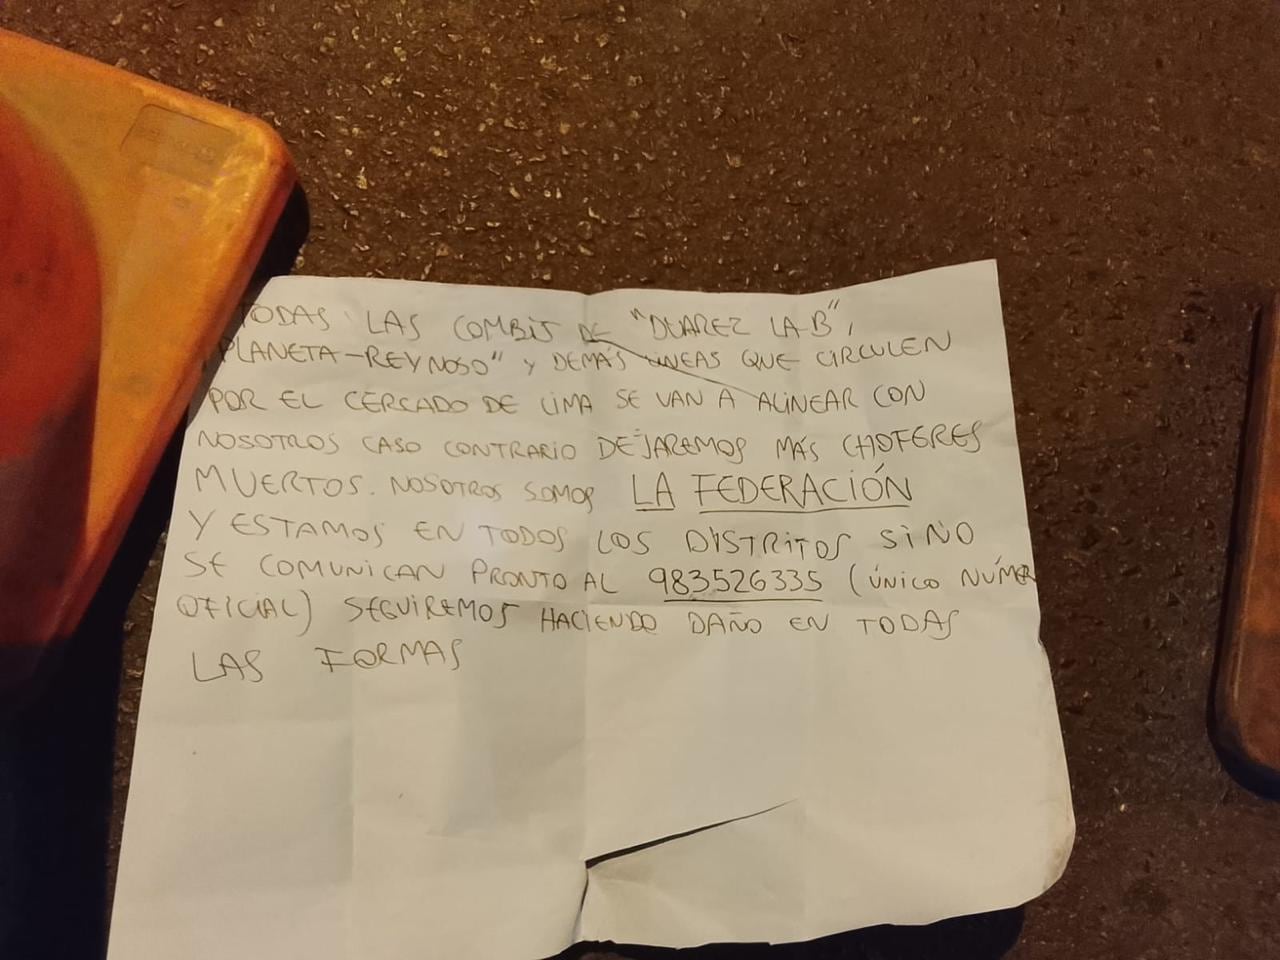 TODAS LAS COMBIS DE "DUAREZ LA B",
PLANETA-REYNOSO" Y DEMÁS LINEAS QUE CIRCULEN
POR EL CERCADO DE LIMA SE VAN A ALINEAR CON
NOSOTROS CASO CONTRARIO DEJAREMOS MÁS CHOFERES
MUERTOS. NOSOTROS SOMOS LA FEDERACIÓN
Y ESTAMOS EN TODOS LOS DISTRITOS SI NO
SE COMUNICAN PRONTO AL 983526335 (ÚNICO NÚMER
OFICIAL) SEGUIREMOS HACIENDO DAÑO EN TODAS
LAS FORMAS